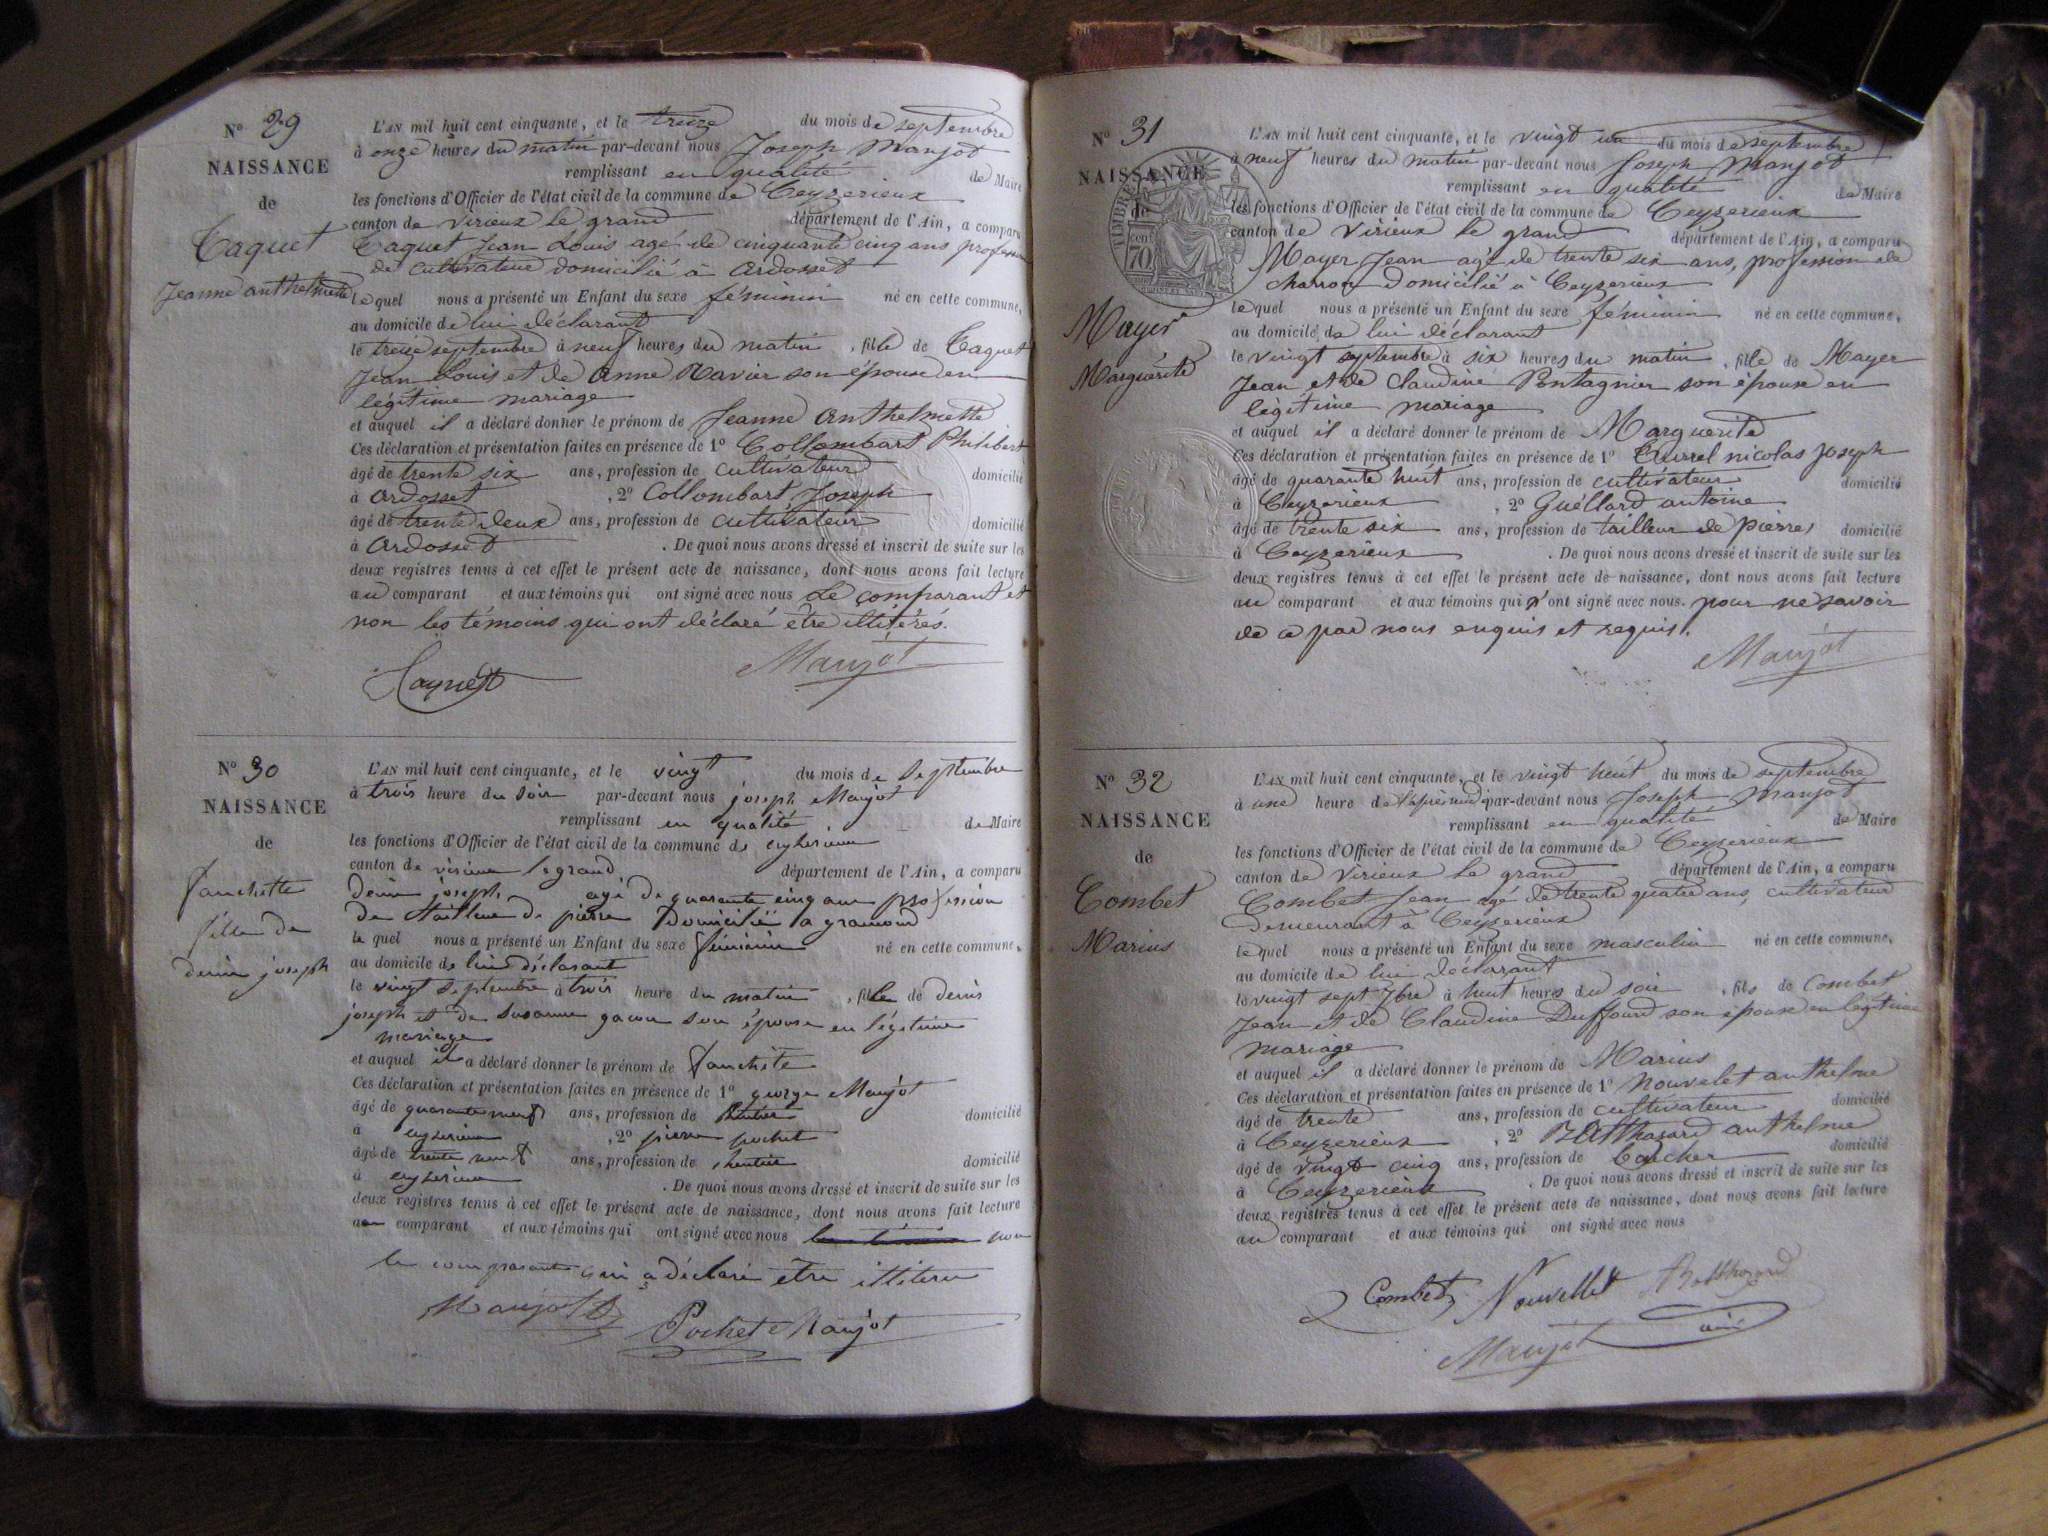 N° 29
NAISSANCE
de
Caquet
Jeanne anthelmette
L'AN mil huit cent cinquante, et le treize du mois de septembre
à onze heures du matin par-devant nous Joseph Manjot
remplissant en qualité de Maire
les fonctions d'Officier de l'état civil de la commune de Ceyzerieux
canton de virieux le grand département de l'Ain, a comparu
Caquet Jean Louis agé de cinquante cinq ans profession
de cultivateur domicilié à ardosset
lequel nous a présenté un Enfant du sexe féminin né en cette commune,
au domicile de lui déclarant
le treize septembre à neuf heures du matin , fille de Caquet
Jean Louis et de anne Navier son épouse en
légitime mariage
et auquel il a déclaré donner le prénom de Jeanne anthelmette
Ces déclaration et présentation faites en présence de 1° Collombart Philibert
âgé de trente six ans, profession de cultivateur domicilié
à ardosset , 2° Collombart Joseph
âgé de trente deux ans, profession de cultivateur domicilié
à ardosset . De quoi nous avons dressé et inscrit de suite sur les
deux registres tenus à cet effet le présent acte de naissance, dont nous avons fait lecture
au comparant et aux témoins qui ont signé avec nous Le comparant et
non les témoins qui ont déclaré être illitérés.
Caquet Manjot
N° 30
NAISSANCE
de
fanchette
fille de
denis joseph
L'AN mil huit cent cinquante, et le vingt du mois de septembre
à trois heure du soir par-devant nous joseph Manjot
remplissant en qualité de Maire
les fonctions d'Officier de l'état civil de la commune de ceyzerieux
canton de virieux le grand département de l'Ain, a comparu
denis joseph agé de quarente cinq ans profession
de tailleur de pierre domicilié a gramond
le quel nous a présenté un Enfant du sexe féminin né en cette commune,
au domicile de lui déclarant
le vingt septembre à trois heure du matin , fille de denis
joseph et de susanne son épouse en légitime
mariage
et auquel il a déclaré donner le prénom de fanchette
Ces déclaration et présentation faites en présence de 1° george Manjot
âgé de quarante neuf ans, profession de rentier domicilié
à ceyzerieux , 2° pierre pochet
âgé de trente neuf ans, profession de rentier domicilié
à ceyzerieux . De quoi nous avons dressé et inscrit de suite sur les
deux registres tenus à cet effet le présent acte de naissance, dont nous avons fait lecture
au comparant et aux témoins qui ont signé avec nous non
le comparant qui a déclaré être illitéré
Manjot Pochet Manjot
N° 31
NAISSANCE
de
TIMBRE
cent 70
Mayer
Marguérite
L'AN mil huit cent cinquante, et le vingt un du mois de septembre
à neuf heures du matin par-devant nous Joseph Manjot
remplissant en qualité de Maire
les fonctions d'Officier de l'état civil de la commune de Ceyzerieux
canton de virieux le grand département de l'Ain, a comparu
Mayer Jean agé de trente six ans, profession de
charron domicilié à Ceyzerieux
lequel nous a présenté un Enfant du sexe féminin né en cette commune,
au domicile de lui déclarant
le vingt septembre à six heures du matin , fille de Mayer
Jean et de claudine Pontagnier son épouse en
légitime mariage
et auquel il a déclaré donner le prénom de Marguerite
Ces déclaration et présentation faites en présence de 1° nicolas joseph
âgé de quarante huit ans, profession de cultivateur domicilié
à Ceyzerieux , 2° Guéllard antoine
âgé de trente six ans, profession de tailleur de pierres domicilié
à Ceyzerieux . De quoi nous avons dressé et inscrit de suite sur les
deux registres tenus à cet effet le présent acte de naissance, dont nous avons fait lecture
au comparant et aux témoins qui n'ont signé avec nous. pour ne savoir
de ce par nous enquis et requis.
Manjot
N° 32
NAISSANCE
de
Combet
Marius
L'AN mil huit cent cinquante, et le vingt huit du mois de septembre
à une heure de l'après midi par-devant nous Joseph Manjot
remplissant en qualité de Maire
les fonctions d'Officier de l'état civil de la commune de Ceyzerieux
canton de virieux le grand département de l'Ain, a comparu
Combet Jean agé de trente quatre ans, cultivateur
demeurant à Ceyzerieux
lequel nous a présenté un Enfant du sexe masculin né en cette commune,
au domicile de lui déclarant
le vingt sept 7bre à huit heures du soir , fils de Combet
Jean et de Claudine Duffourd son épouse en légitime
mariage
et auquel il a déclaré donner le prénom de Marius
Ces déclaration et présentation faites en présence de 1° Nouvelet anthelme
âgé de trente ans, profession de cultivateur domicilié
à Ceyzerieux , 2° Balthazard anthelme
âgé de vingt cinq ans, profession de boucher domicilié
à Ceyzerieux . De quoi nous avons dressé et inscrit de suite sur les
deux registres tenus à cet effet le présent acte de naissance, dont nous avons fait lecture
au comparant et aux témoins qui ont signé avec nous
Combet Nouvellet Balthazard
ainé
Manjot